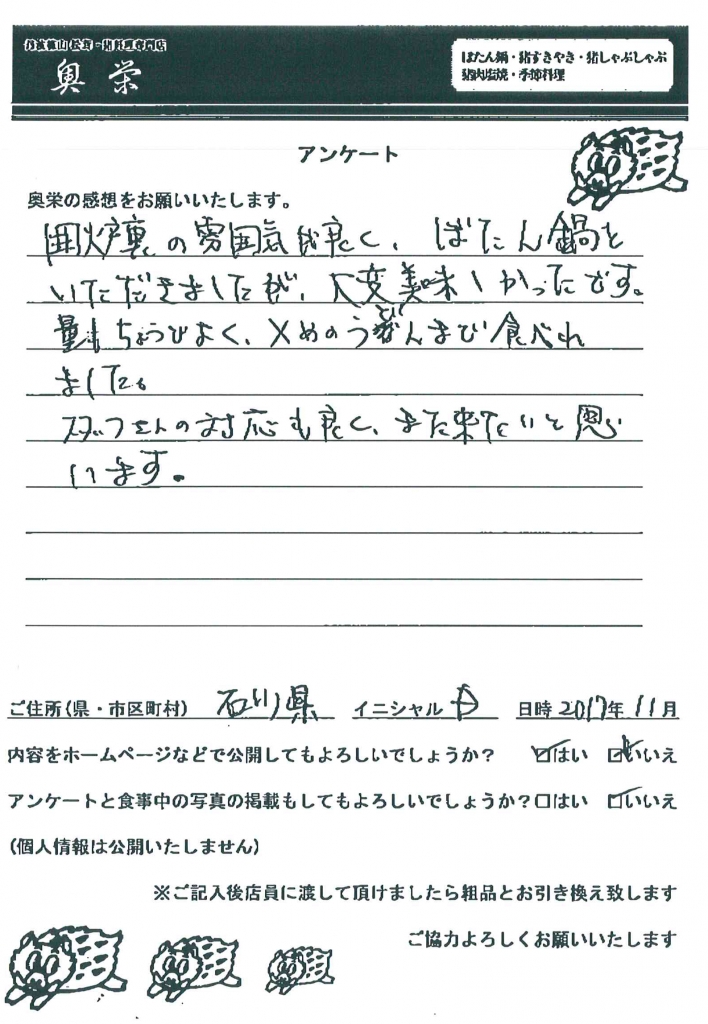 丹波篠山 松茸・猪料理専門店
奥栄
ぼたん鍋・猪すきやき・猪しゃぶしゃぶ
猪肉塩焼・季節料理
アンケート
奥栄の感想をお願いいたします。
囲炉裏の雰囲気が良く、ぼたん鍋を
いただきましたが、大変美味しかったです。
量もちょうどよく、〆めのうどんまで食べれ
ました。
スタッフさんの対応も良く、また来たいと思
います。
ご住所(県・市区町村) 石川県 イニシャル 日時 2017年 11月
内容をホームページなどで公開してもよろしいでしょうか? ☑はい ☑いいえ
アンケートと食事中の写真の掲載もしてもよろしいでしょうか?□はい ☑いいえ
(個人情報は公開いたしません)
※ご記入後店員に渡して頂けましたら粗品とお引き換え致します
ご協力よろしくお願いいたします